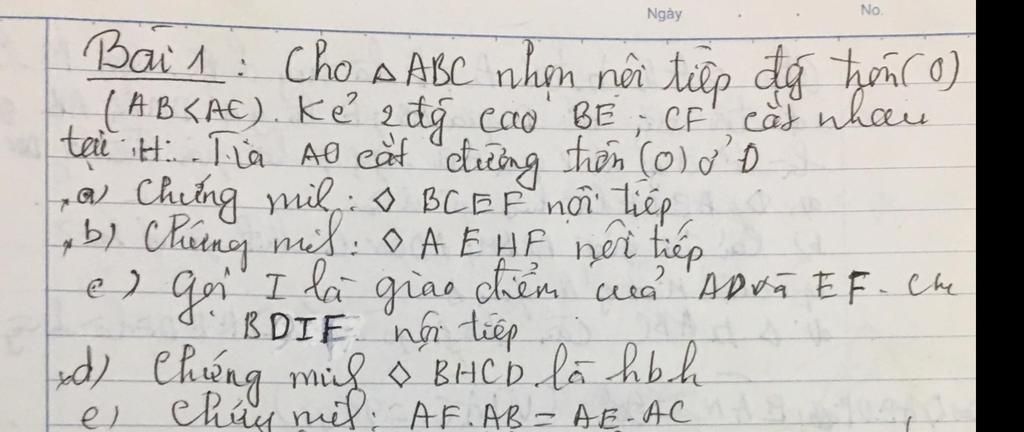 Ngày . . No.
Bài 1: Cho △ ABC nhọn nội tiếp đg tròn (O)
(AB<AC). Kẻ 2 đg cao BE; CF cắt nhau
tại H. Tia AO cắt đường tròn (O) ở D
a) Chứng mih: ◇ BCEF nội tiếp
b) Chứng mih: ◇ AEHF nội tiếp
c) Gọi I là giao điểm của AD và EF. Cm
BDIF nội tiếp
d) Chứng mih ◇ BHCD là hbh
e) Chứng mih: AF.AB = AE.AC